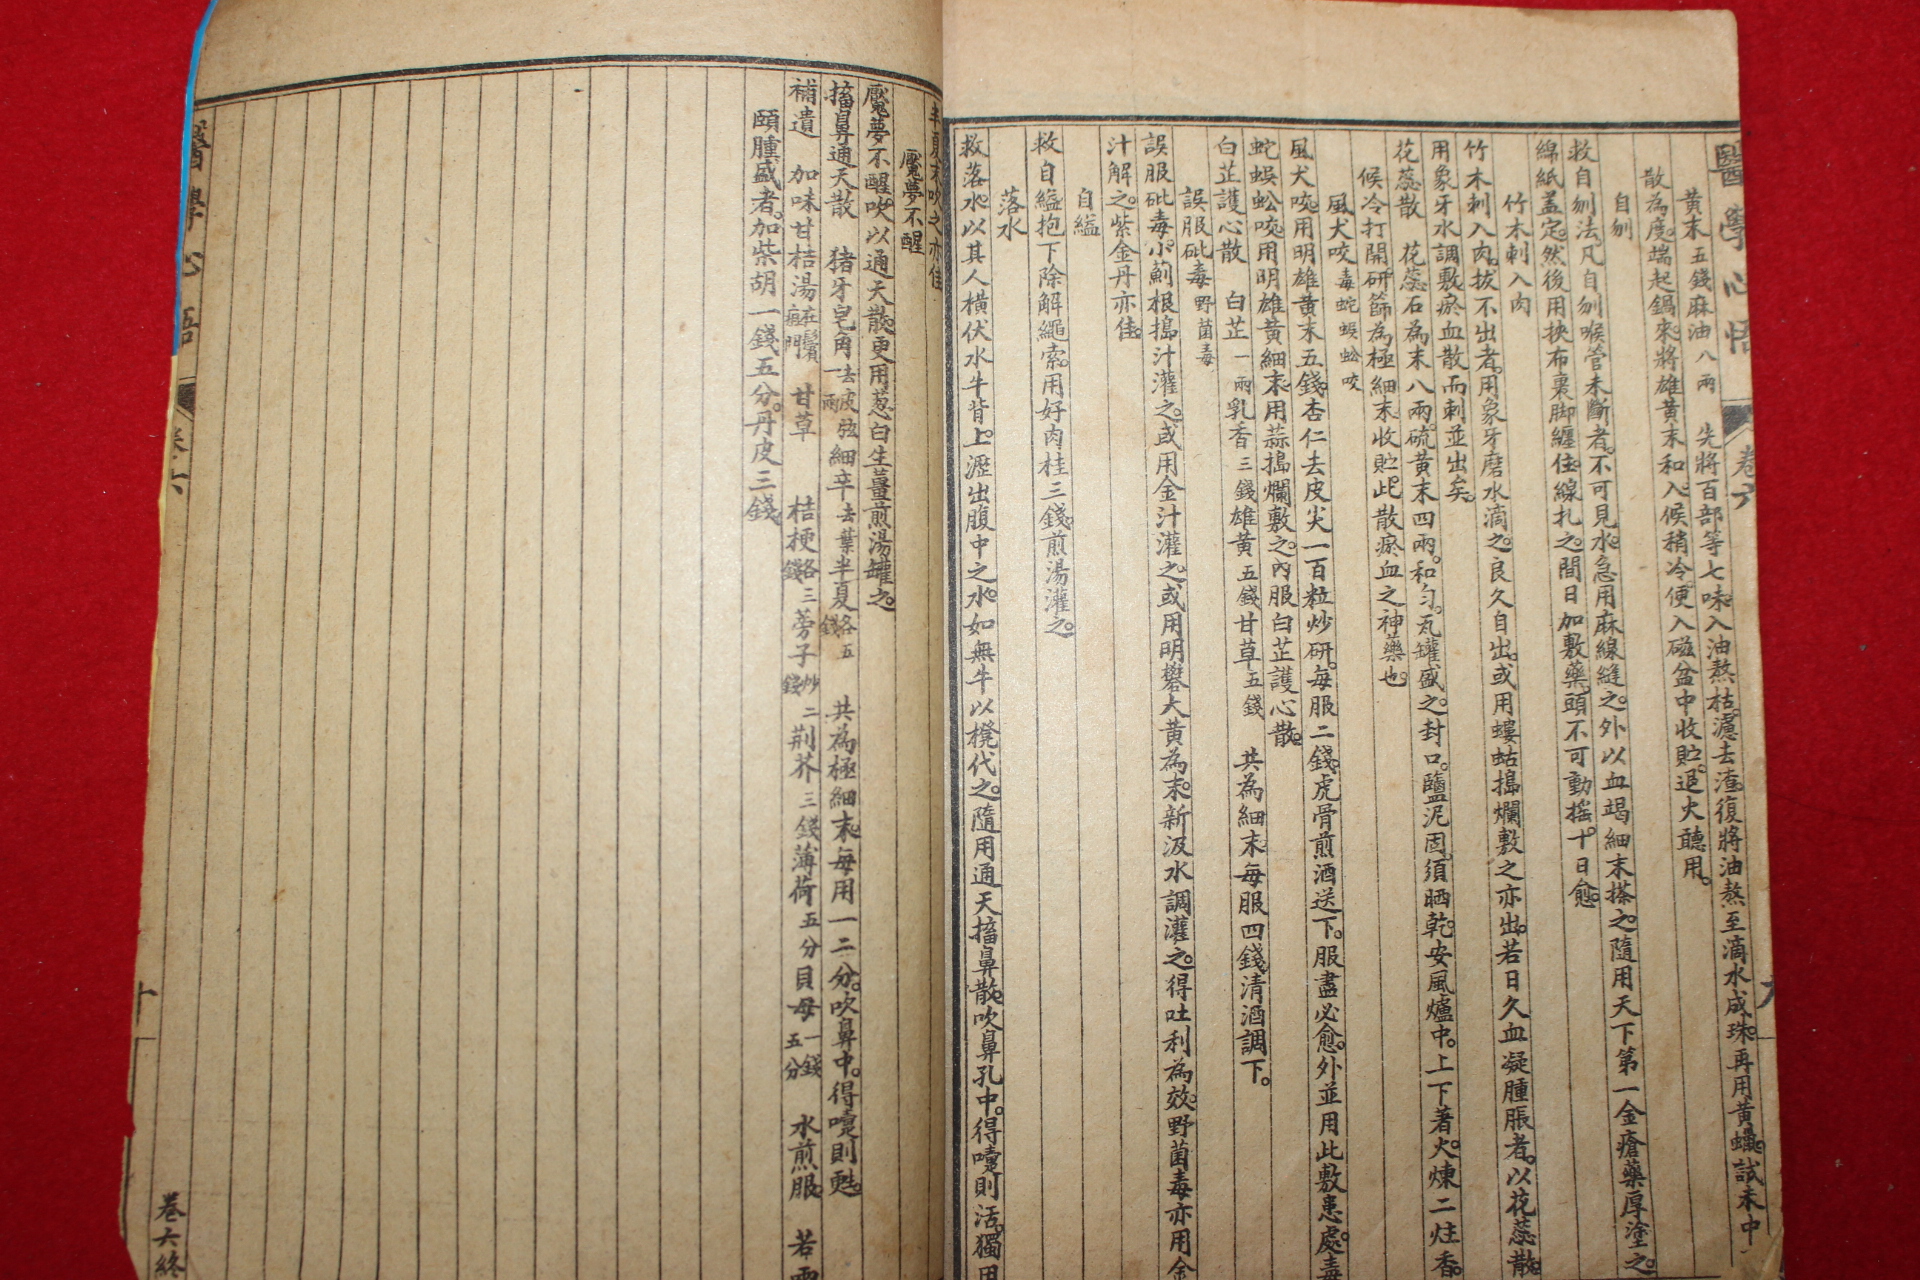 醫學心悟 卷六 九
黃末五錢麻油八兩 先將百部等七味入油熬枯濾去渣復將油熬至滴水成珠再用黃蠟試末中
散為度端起鍋來將雄黃末和入候稍冷便入磁盆中收貯退火聽用
自刎
救自刎法凡自刎喉管未斷者不可見水急用麻線縫之外以血竭細末搽之隨用天下第一金瘡藥厚塗之
綿紙蓋定然後用挾布裹脚纏住線扎之間日加敷藥頭不可動摇十日愈
竹木刺入肉
竹木刺入肉拔不出者用象牙磨水滴之良久自出或用螻蛄搗爛敷之亦出若日久血凝腫脹者以花蕊散
用象牙水調敷瘀血散而刺並出矣
花蕊散 花蕊石為末八兩硫黃末四兩和勻瓦罐盛之封口鹽泥固須晒乾安風爐中上下著火煉二炷香
候冷打開研篩為極細末收貯此散瘀血之神藥也
風犬咬毒蛇蜈蚣咬
風犬咬用明雄黃末五錢杏仁去皮尖一百粒炒研每服二錢虎骨煎酒送下服盡必愈外並用此敷患處毒
蛇蜈蚣咬用明雄黃細末用蒜搗爛敷之內服白芷護心散
白芷護心散 白芷一兩乳香三錢雄黃五錢甘草五錢 共為細末每服四錢清酒調下
誤服砒毒野菌毒
誤服砒毒小薊根搗汁灌之或用金汁灌之或用明礬大黃為末新汲水調灌之得吐利為效野菌毒亦用金
汁解之紫金丹亦佳
自縊
救自縊抱下除解繩索用好肉桂三錢煎湯灌之
落水
救落水以其人橫伏水牛背上瀝出腹中之水如無牛以櫈代之隨用通天搐鼻散吹鼻孔中得嚏則活獨用
半夏末吹之亦佳
魘夢不醒
魘夢不醒吹以通天散更用葱白生薑煎湯罐之
搐鼻通天散 猪牙皂角去皮弦一兩細辛去葉半夏各五錢 共為極細末每用一二分吹鼻中得嚏則甦
補遺 加味甘桔湯在鬢疽門 甘草 桔梗各三錢蒡子炒二錢荆芥三錢薄荷五分貝母一錢五分 水煎服 若
頤腫盛者加柴胡一錢五分丹皮三錢
醫學心悟 卷六 十
卷六終